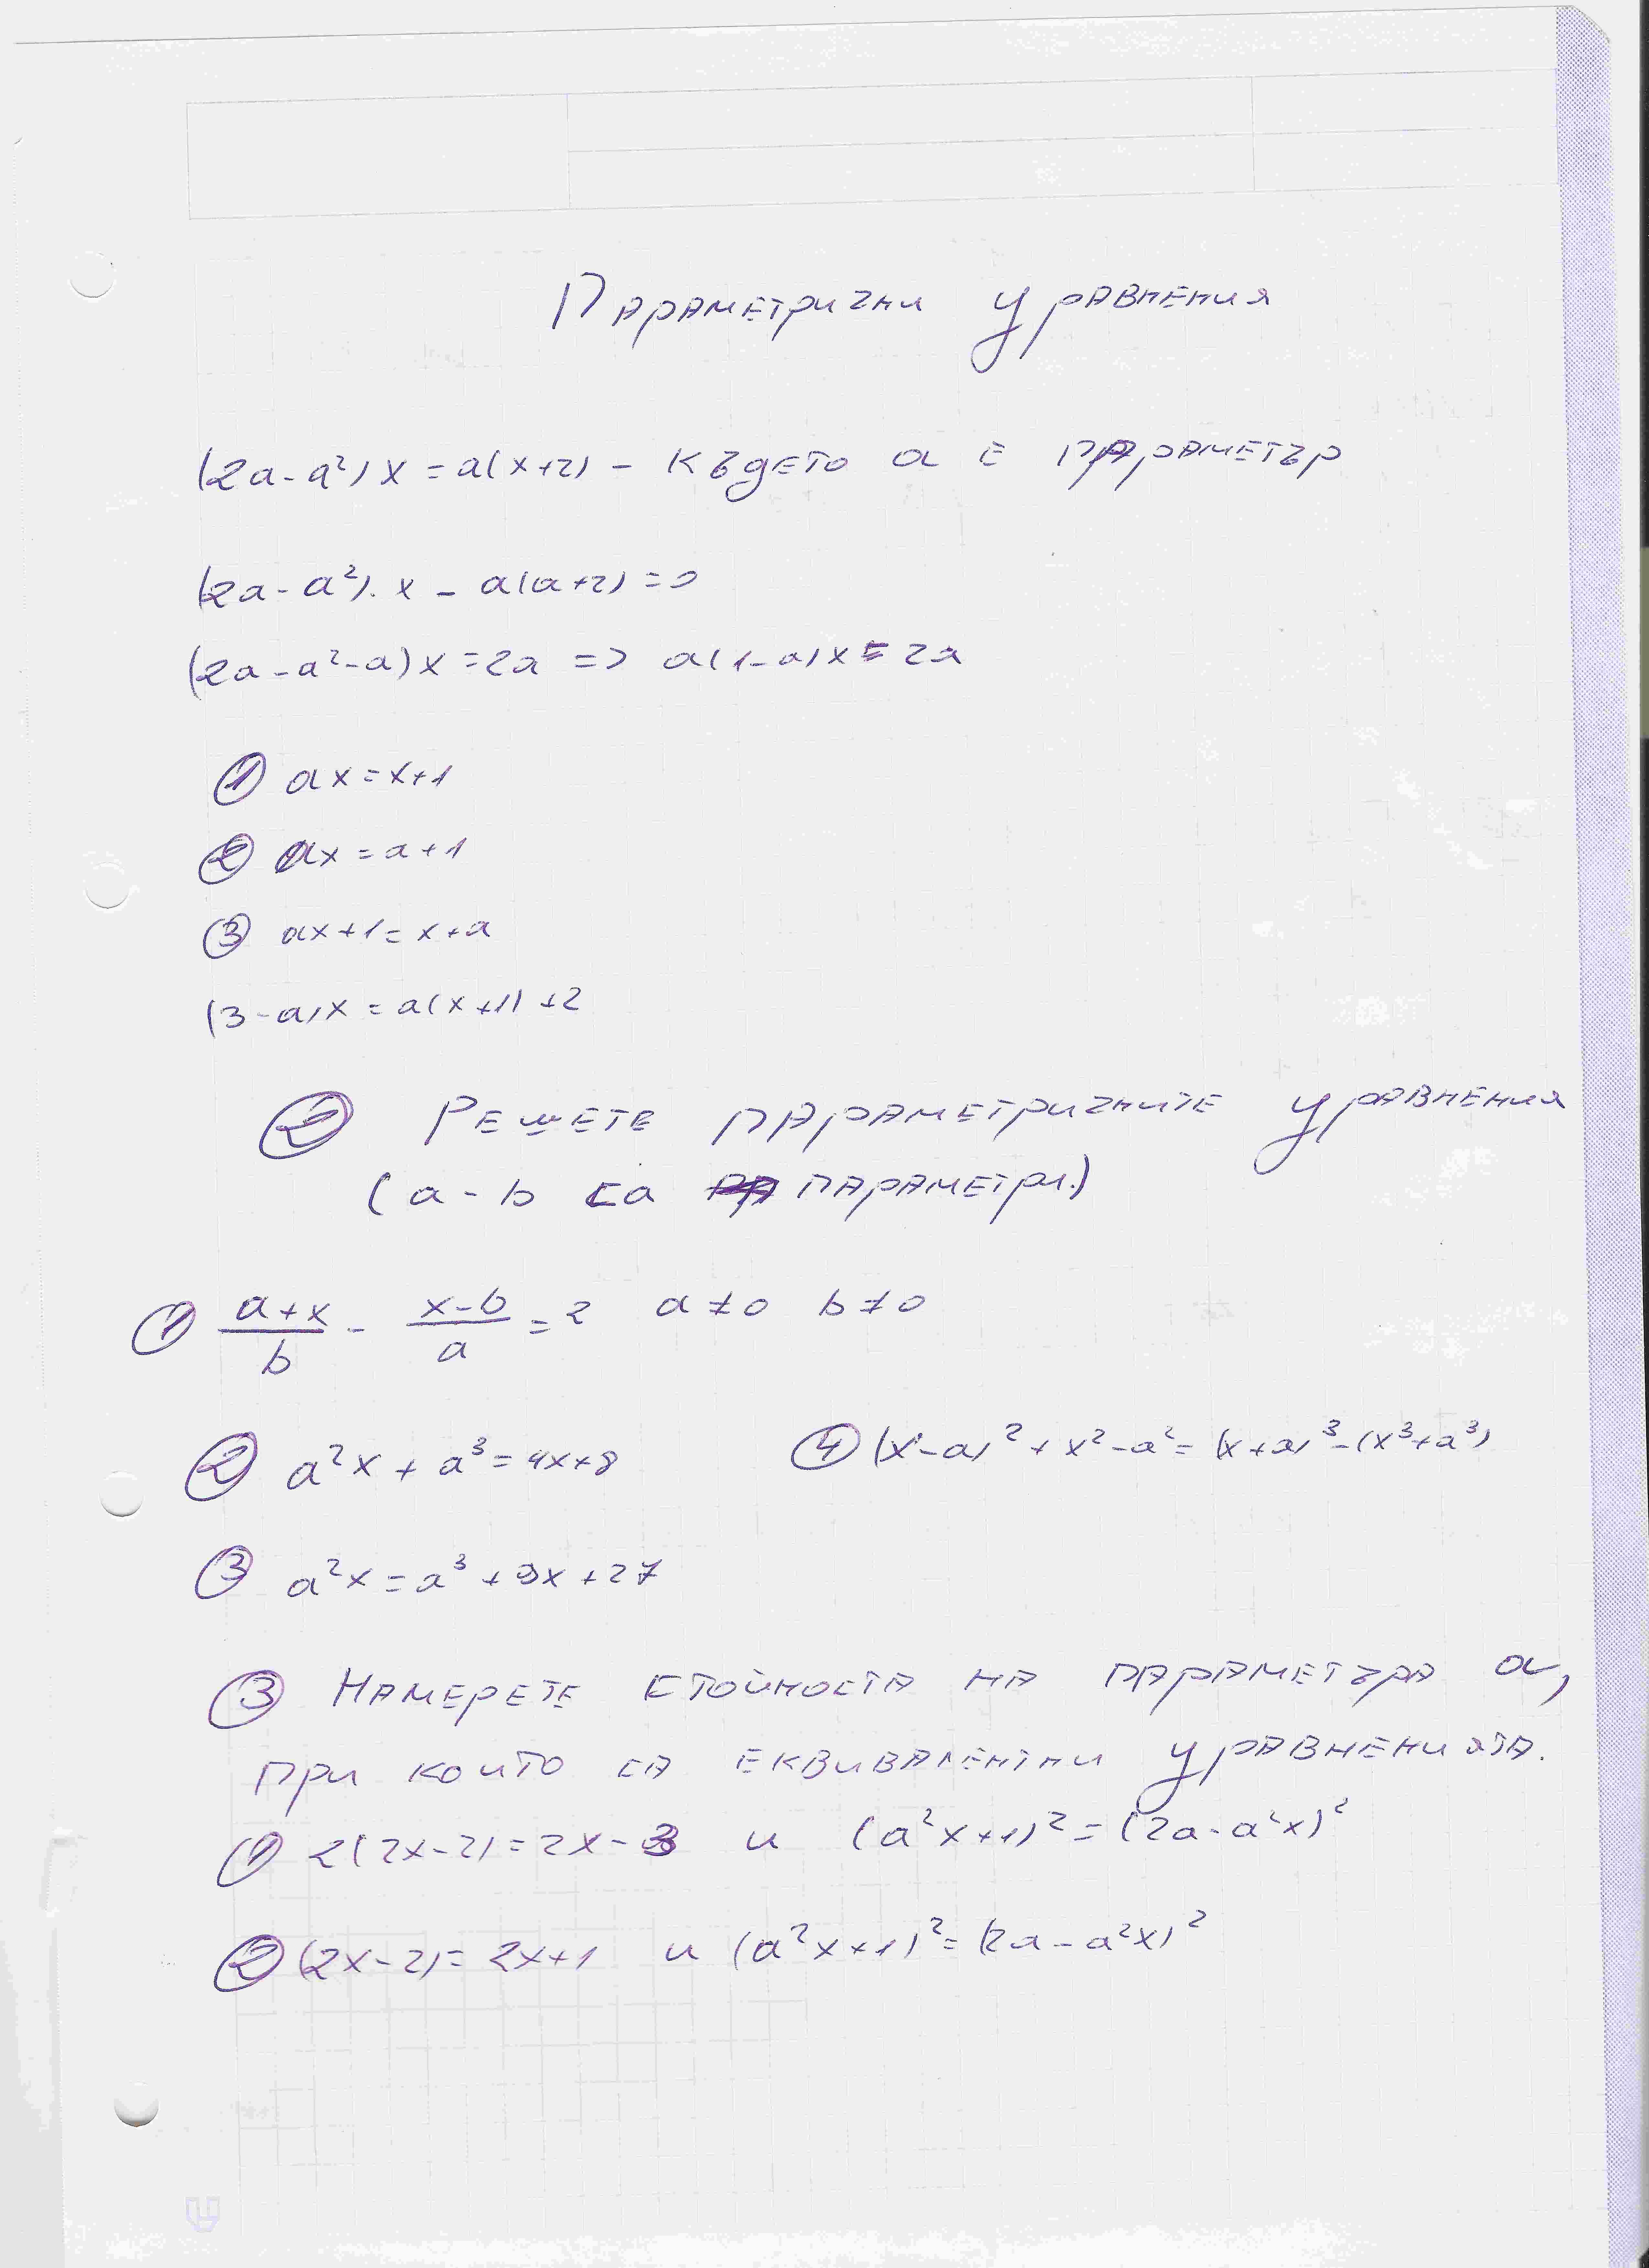 Параметрични уравнения
(2a-a²)x = a(x+2) - където a е параметър
(2a-a²).x - a(a+2) = 0
(2a-a²-a)x = 2a => a(1-a)x = 2a
① ax = x+1
② ax = a+1
③ ax+1 = x+a
(3-a)x = a(x+1)+2
② Решете параметричните уравнения
(a - b са параметри.)
① (a+x)/b - (x-b)/a = 2 a≠0 b≠0
② a²x + a³ = 4x+8 ④ (x-a)² + x² - a² = (x+a)³ - (x³+a³)
③ a²x = a³ + 9x + 27
③ Намерете стойноста на параметъра a,
при които са еквивалентни уравненията.
① 2(2x-2) = 2x-3 и (a²x+1)² = (2a-a²x)²
② (2x-2) = 2x+1 и (a²x+1)² = (2a-a²x)²